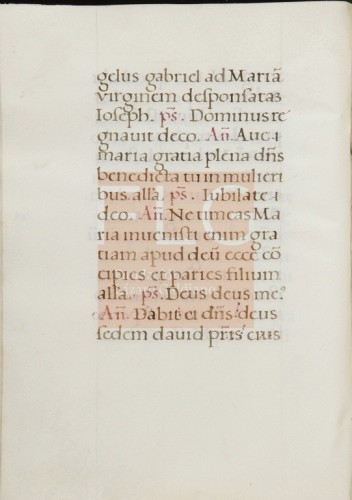 gelus gabriel ad Mariā
virginem desponsataʒ
Ioseph. ps̄. Dominus re
gnavit deco. An̄. Aue i
maria gratia plena dn̄s
benedicta tu in mulieri
bus alła. ps̄. Iubilate i
deo. An̄. Ne timeas Ma
ria invenisti enim gra
tiam apud deū ecce cō
cipies et paries filium
alła. ps̄. Deus deus me⁹
An̄. Dabit ei dn̄s deus
sedem david pr̄is eius